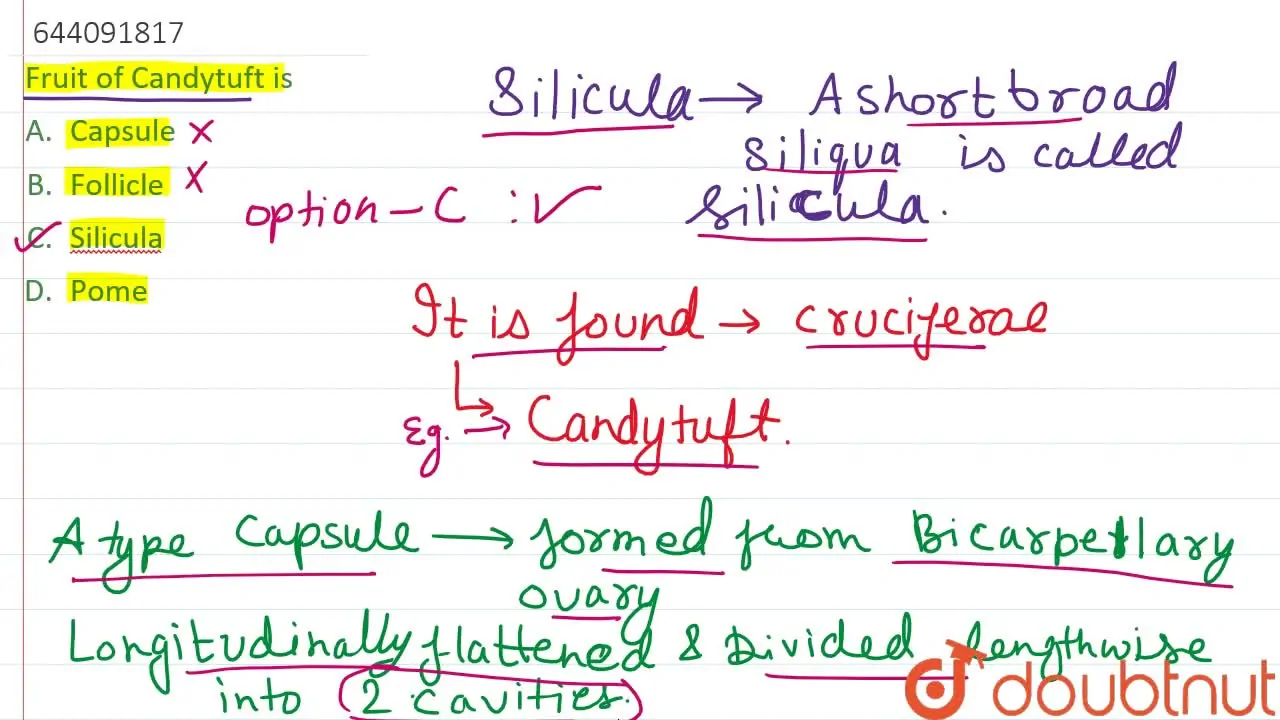 644091817
Fruit of Candytuft is
A. Capsule X
B. Follicle X
C. Silicula
D. Pome
option - C : ✓
Silicula → A short broad
siliqua is called
silicula.
It is found → cruciferae
Eg. → Candytuft.
A type Capsule → formed from Bicarpellary
ovary
Longitudinally flattened & Divided lengthwise
into 2 cavities.
doubtnut